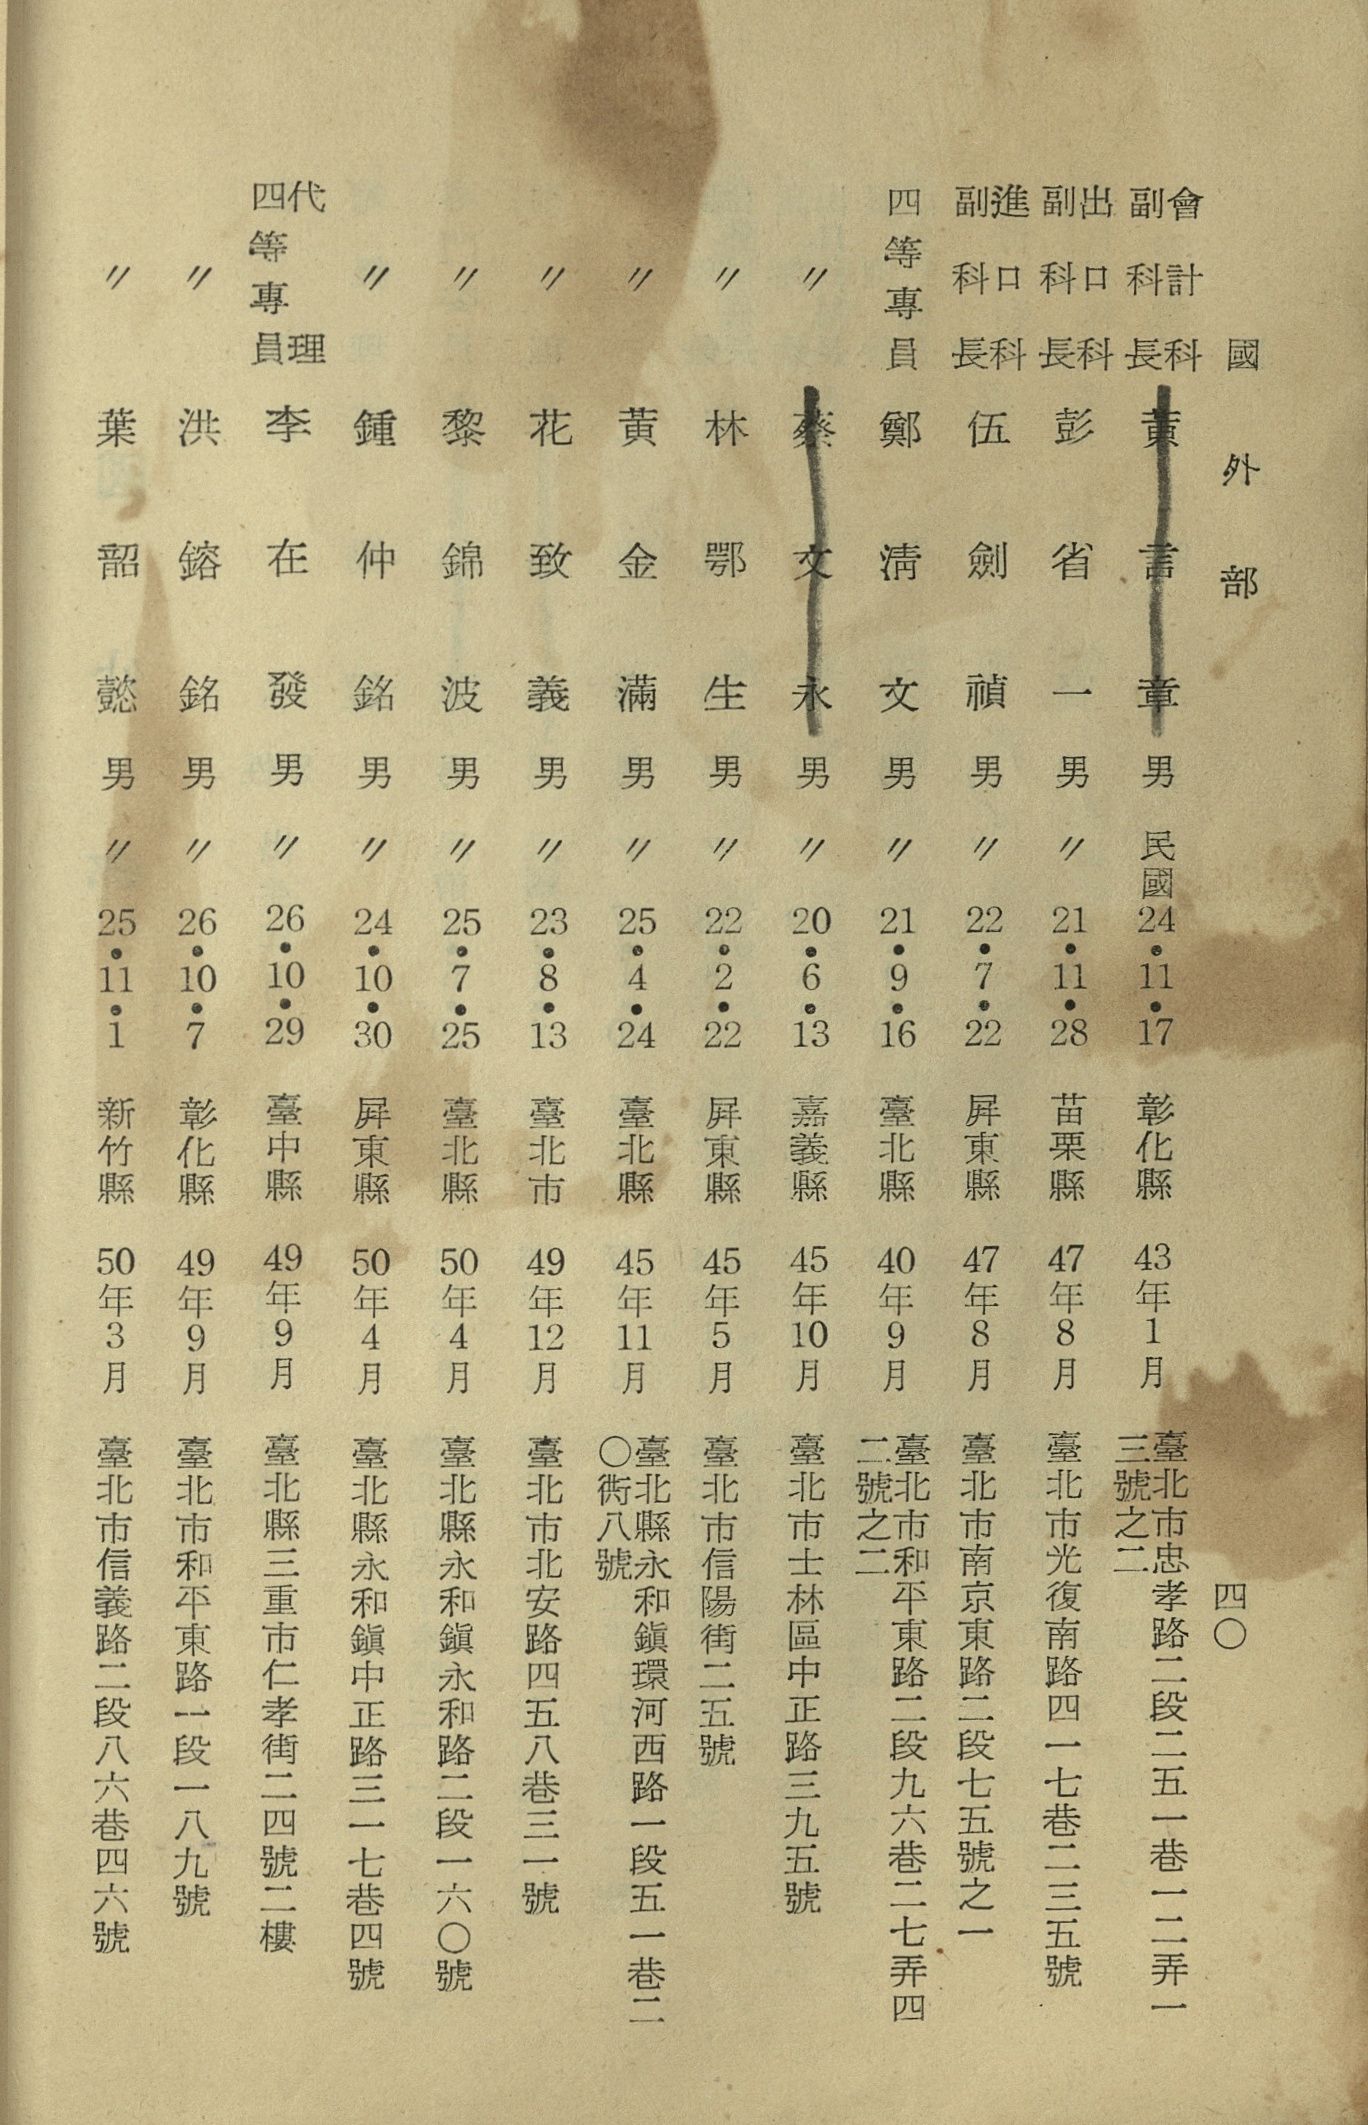 國外部
四〇
會計科副科長 黃言章 男 民國24•11•17 彰化縣 43年1月 臺北市忠孝路二段二五一巷一二弄一三號之二
出口科副科長 彭省一 男 〃 21•11•28 苗栗縣 47年8月 臺北市光復南路四一七巷二三五號
進口科副科長 伍劍禎 男 〃 22•7•22 屛東縣 47年8月 臺北市南京東路二段七五號之一
四等專員 鄭淸文 男 〃 21•9•16 臺北縣 40年9月 臺北市和平東路二段九六巷二七弄四二號之二
〃 蔡文永 男 〃 20•6•13 嘉義縣 45年10月 臺北市士林區中正路三九五號
〃 林鄂生 男 〃 22•2•22 屛東縣 45年5月 臺北市信陽街二五號
〃 黃金滿 男 〃 25•4•24 臺北縣 45年11月 臺北縣永和鎭環河西路一段五一巷二〇衖八號
〃 花致義 男 〃 23•8•13 臺北市 49年12月 臺北市北安路四五八巷三一號
〃 黎錦波 男 〃 25•7•25 臺北縣 50年4月 臺北縣永和鎭永和路二段一六〇號
〃 鍾仲銘 男 〃 24•10•30 屛東縣 50年4月 臺北縣永和鎭中正路三一七巷四號
代理四等專員 李在發 男 〃 26•10•29 臺中縣 49年9月 臺北縣三重市仁孝街二四號二樓
〃 洪鎔銘 男 〃 26•10•7 彰化縣 49年9月 臺北市和平東路一段一八九號
〃 葉韶懿 男 〃 25•11•1 新竹縣 50年3月 臺北市信義路二段八六巷四六號